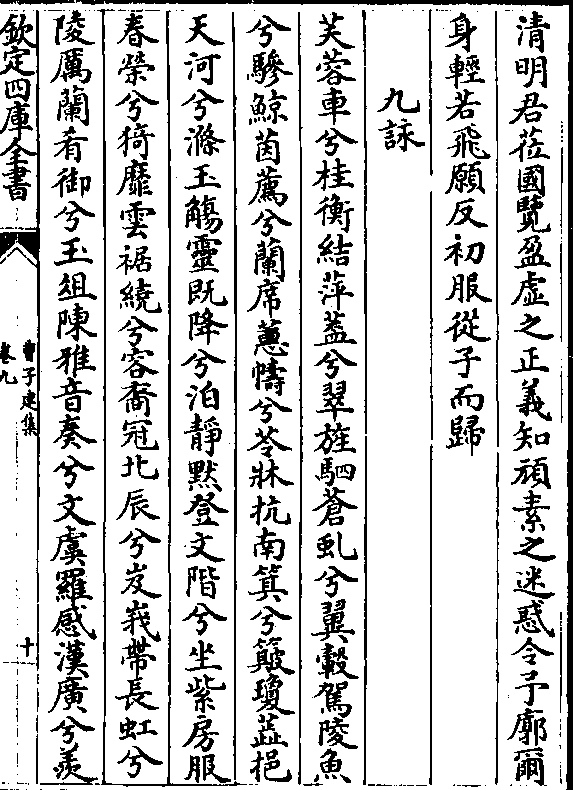 清明君莅國覽盈虛之正義知頑素之迷惑令予廓爾
身輕若飛願反初服從子而歸
九詠
芙蓉車兮桂衡結萍葢兮翠旌駟蒼虬兮翼轂駕陵魚
兮驂鯨茵薦兮蘭席蕙幬兮苓牀抗南箕兮簸瓊蘂挹
天河兮滌玉觴靈既降兮泊靜默登文階兮坐紫房服
春榮兮猗靡雲裾繞兮容裔冠北辰兮岌峩帶長虹兮
陵厲蘭肴御兮玉俎陳雅音奏兮文虞羅感漢廣兮羨
欽定四庫全書
曹子建集
卷九
十